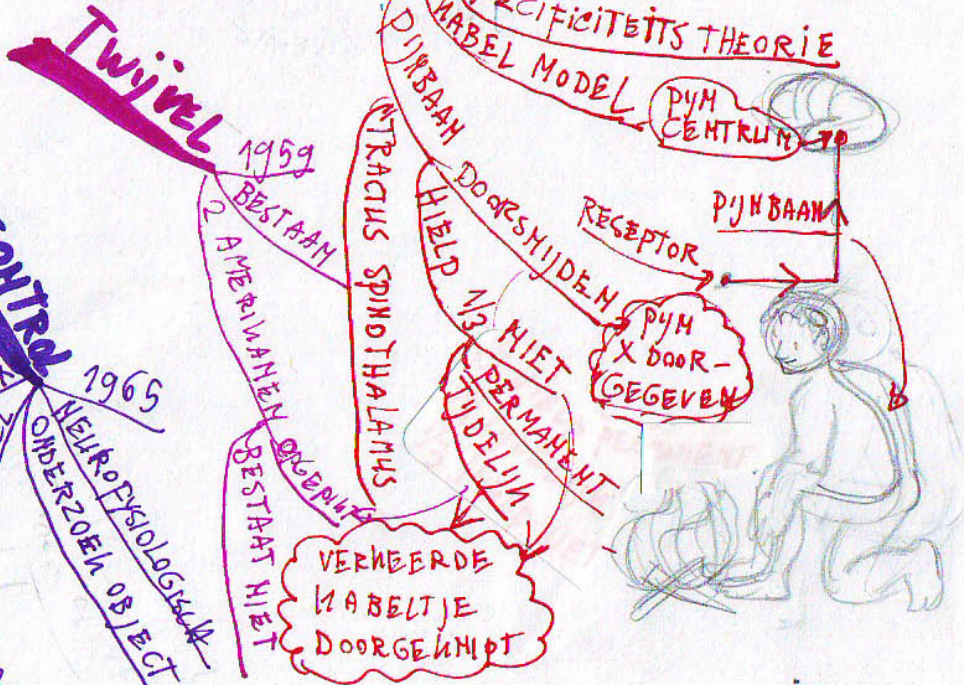 TwijfeL
1959
BESTAAN
2 AMERIKANEN
BESTAAT NIET
1965
NEUROFYSIOLOGISCH
ONDERZOEK OBJECT
CIFICITEITS THEORIE
KABEL MODEL
PIJN
CENTRUM
PIJNBAAN
RESEPTOR
PIJNBAAN
DOORSNIJDEN
PIJN
X DOOR-
GEGEVEN
TRACTUS SPINOTHALAMUS
HIELP
1/3 NIET
PERMANENT
TIJDELIJK
VERKEERDE
KABELTJE
DOORGEKNIPT